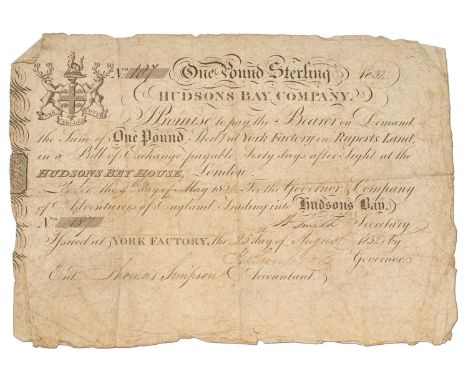 No. 107 One Pound Sterling 1832
HUDSONS BAY COMPANY.
I Promise to pay the Bearer on Demand
the Sum of One Pound Sterlg. at York Factory in Ruperts Land
in a Bill of Exchange payable Sixty days after Sight at the
HUDSONS BAY HOUSE, London.
London the day of May For the Governor & Company
of Adventurers of England Trading into Hudsons Bay.
No. 107 W Smith Secretary
Issued at YORK FACTORY, the 25th day of August 1832 by
Governor.
Entd. Thomas Simpson Accountant.